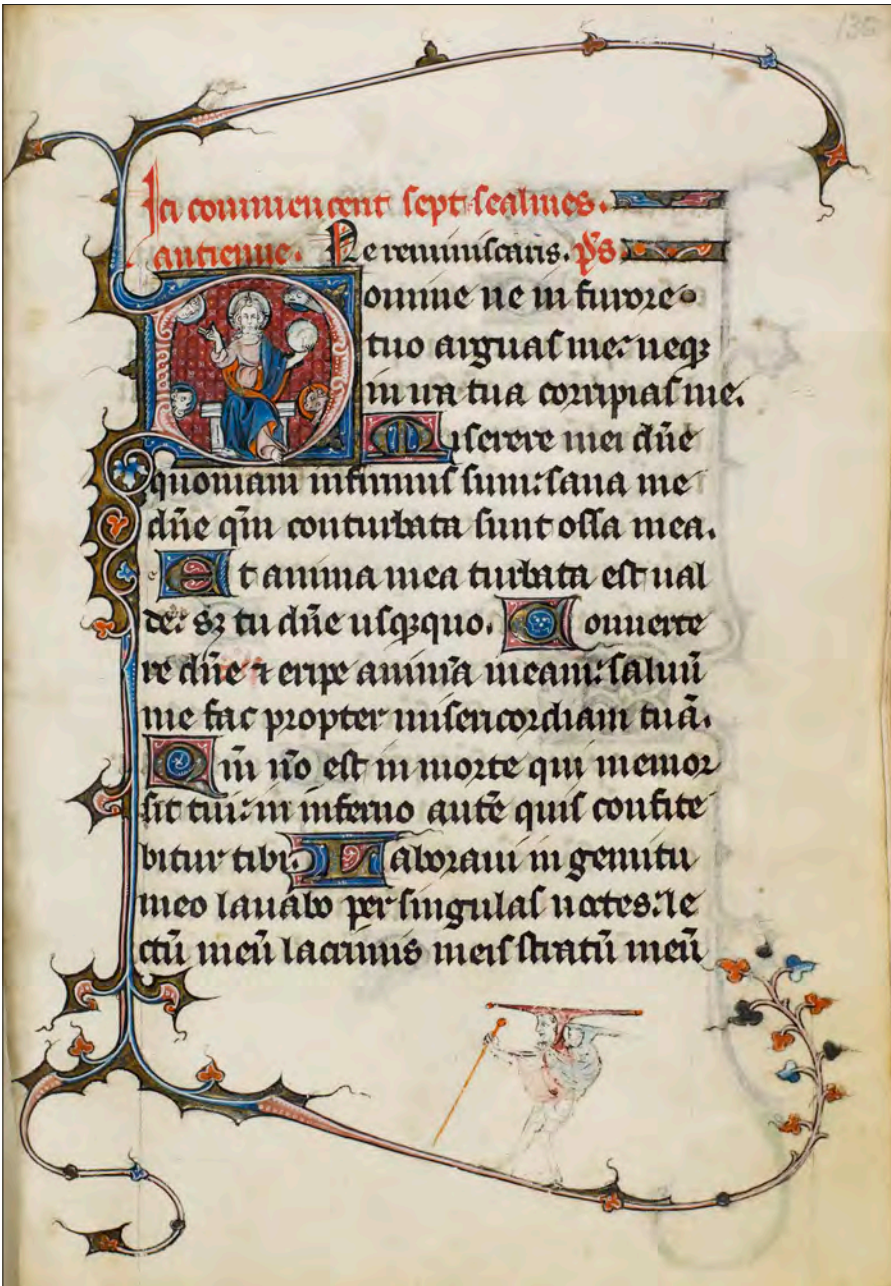 136
Ici commencent sept sealmes.
antienne. Ne reminiscaris. ps
Domine ne in furore
tuo arguas me: neqꝫ
in ira tua corripias me.
Miserere mei dn̄e
quoniam infirmus sum: sana me
dn̄e qm̄ conturbata sunt ossa mea.
Et anima mea turbata est ual
de: sꝫ tu dn̄e usqꝫquo. Conuerte
re dn̄e ⁊ eripe animā meam: saluū
me fac propter misericordiam tuā.
Qm̄ nō est in morte qui memor
sit tui: in inferno autē quis confite
bitur tibi. Laboraui in gemitu
meo lauabo per singulas noctes: le
ctū meū lacrimis meis stratū meū